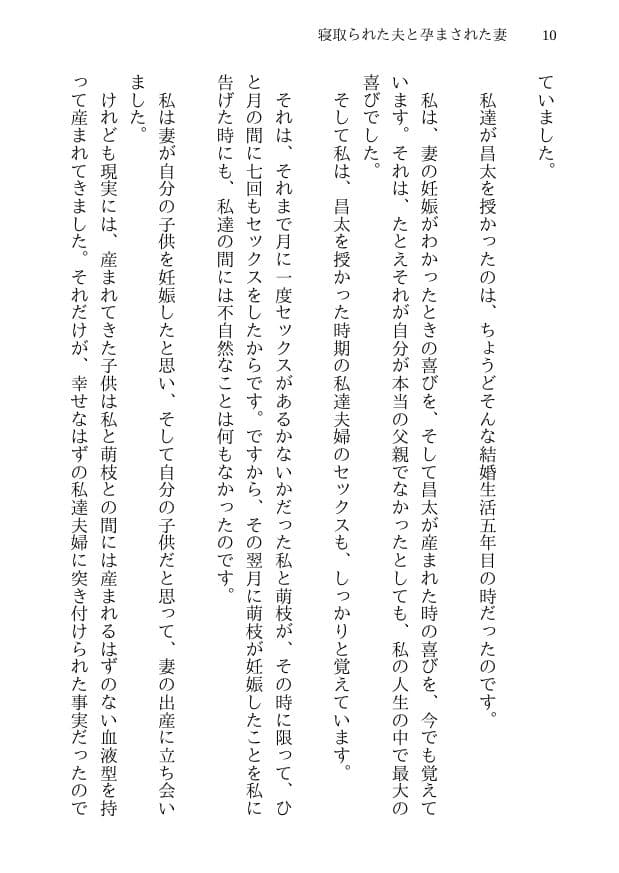 寝取られた夫と孕まされた妻　10
ていました。
私達が昌太を授かったのは、ちょうどそんな結婚生活五年目の時だったのです。
私は、妻の妊娠がわかったときの喜びを、そして昌太が産まれた時の喜びを、今でも覚えて
います。それは、たとえそれが自分が本当の父親でなかったとしても、私の人生の中で最大の
喜びでした。
そして私は、昌太を授かった時期の私達夫婦のセックスも、しっかりと覚えています。
それは、それまで月に一度セックスがあるかないかだった私と萌枝が、その時に限って、ひ
と月の間に七回もセックスをしたからです。ですから、その翌月に萌枝が妊娠したことを私に
告げた時にも、私達の間には不自然なことは何もなかったのです。
私は妻が自分の子供を妊娠したと思い、そして自分の子供だと思って、妻の出産に立ち会い
ました。
けれども現実には、産まれてきた子供は私と萌枝との間には産まれるはずのない血液型を持
って産まれてきました。それだけが、幸せなはずの私達夫婦に突き付けられた事実だったので